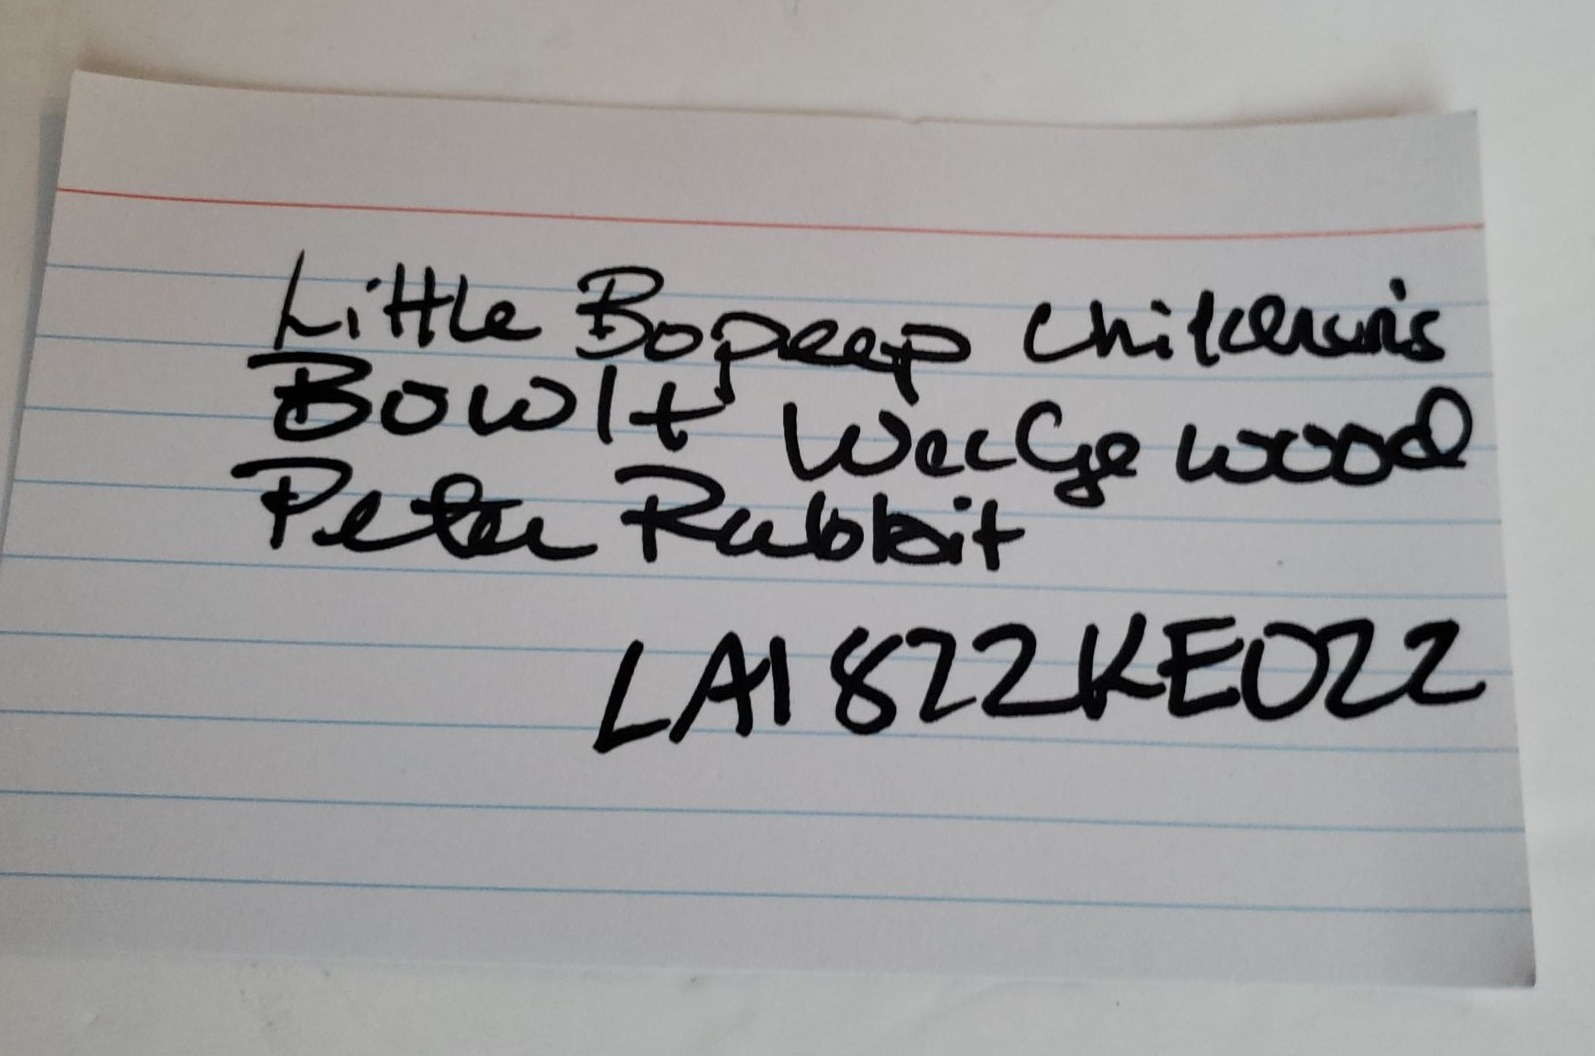 Little Bopeep Children's
Bowl + Wedgewood
Peter Rabbit
LA1822KE022